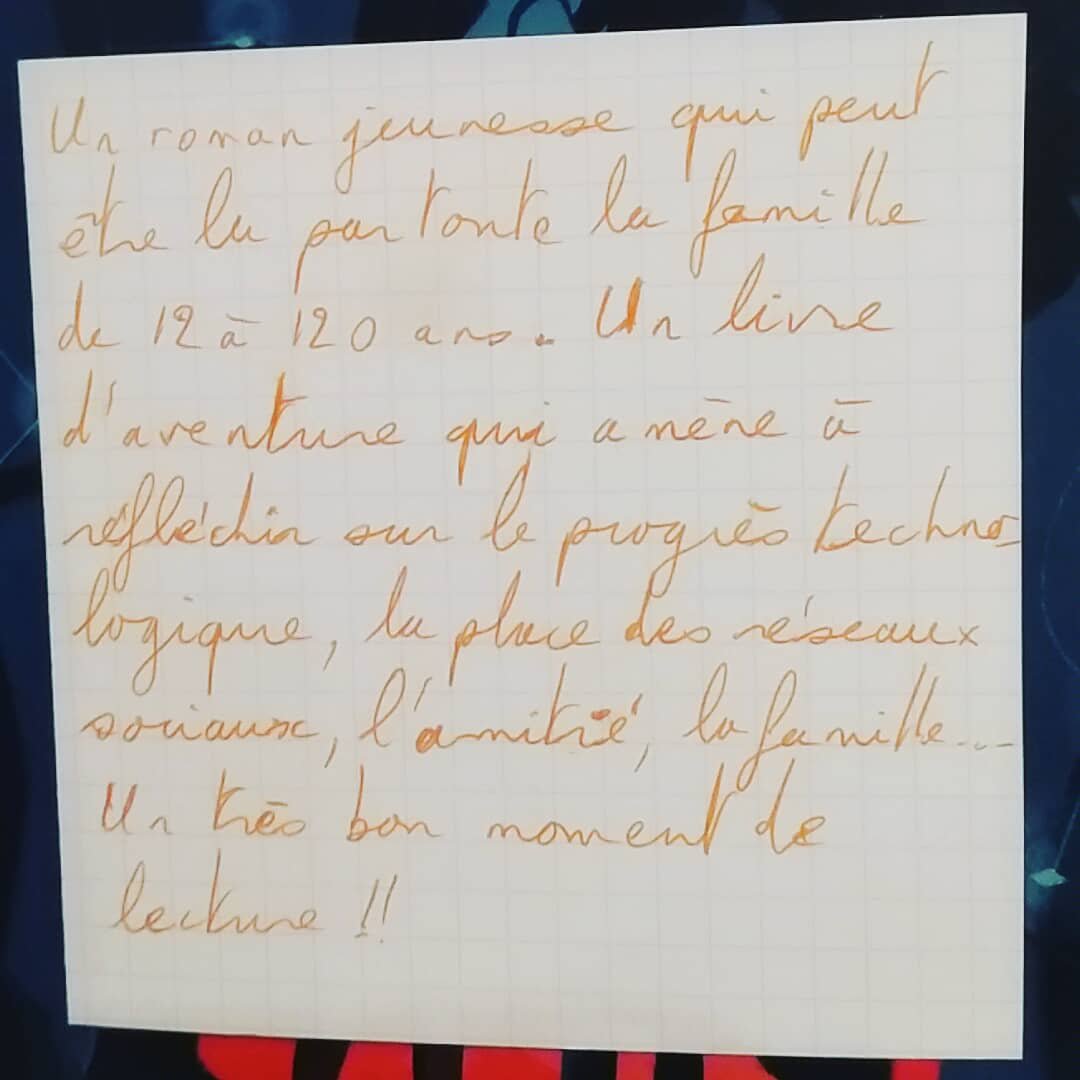 Un roman jeunesse qui peut
être lu par toute la famille
de 12 à 120 ans. Un livre
d'aventure qui amène à
réfléchir sur le progrès techno-
logique, la place des réseaux
sociaux, l'amitié, la famille...
Un très bon moment de
lecture !!